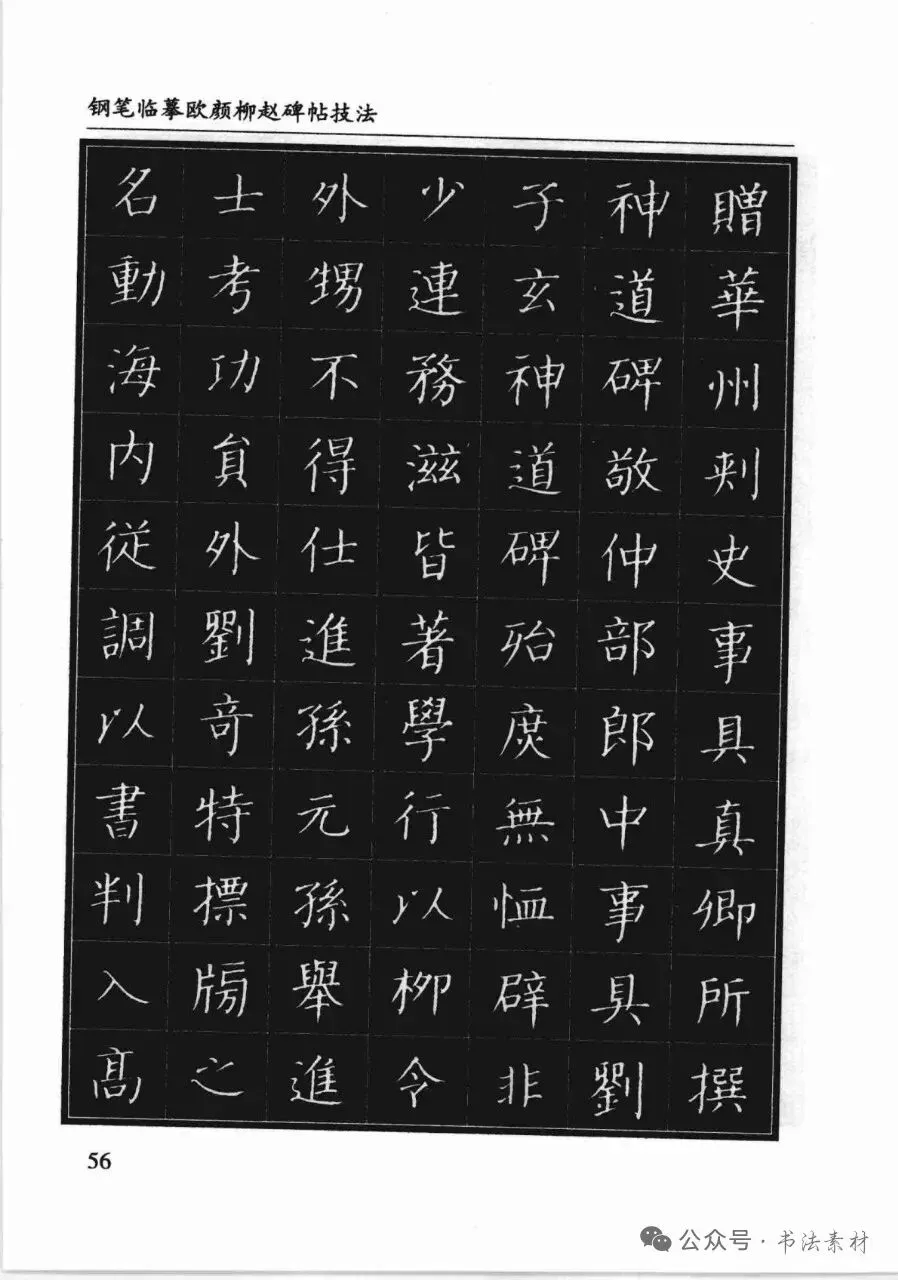 钢笔临摹欧颜柳赵碑帖技法
贈華州刾史事具真卿所撰
神道碑敬仲部郎中事具劉
子玄神道碑殆庶無恤辟非
少連務滋皆著學行以柳令
外甥不得仕進孫元孫舉進
士考功貟外劉奇特標牓之
名動海内従調以書判入髙
56
公众号·书法素材